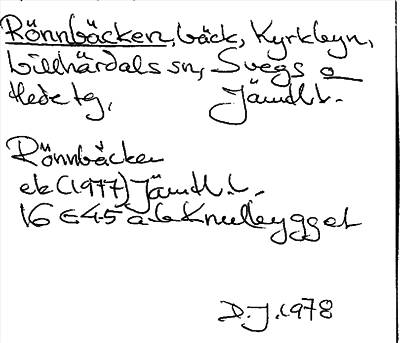 Rönnbäcken, bäck, Kyrkbyn,
Lillhärdals sn, Svegs o
Hede tg, Jämtl.l.
Rönnbäcken
ek (1977) Jämtl.l.
16 E 4-5 a-b Knulleygget
D.J. 1978